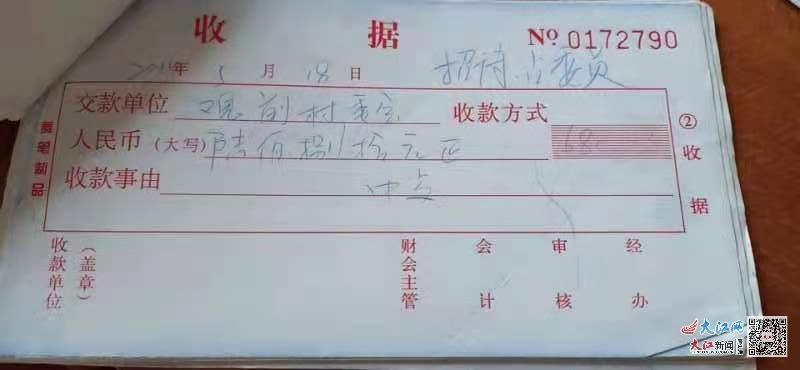 收 据 № 0172790
年 5 月 18 日 招待 委员
交款单位 观前村委会 收款方式
人民币 (大写) 陆佰捌拾元正 680
收款事由
② 收 据
收款单位 (盖章) 财会主管 会计 审核 经办
大江网
大江新闻